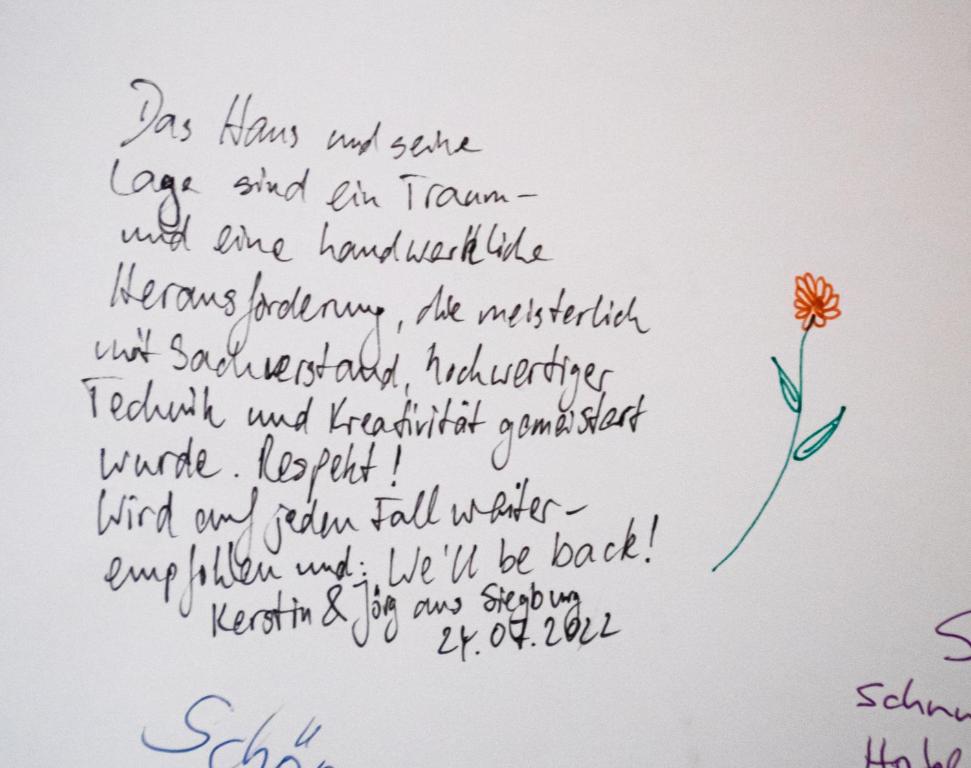 Das Haus und seine
Lage sind ein Traum -
und eine handwerkliche
Herausforderung, die meisterlich
mit Sachverstand, hochwertiger
Technik und Kreativität gemeistert
wurde. Respekt!
Wird auf jeden Fall weiter-
empfohlen und: We'll be back!
Kerstin & Jörg aus Siegburg
24.07.2022